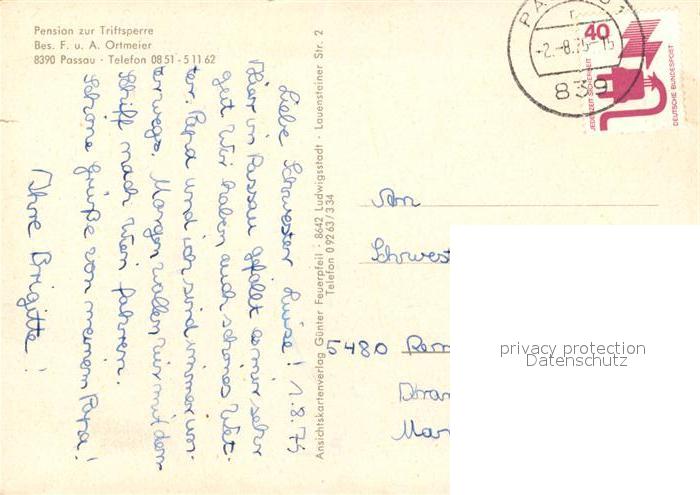 Pension zur Triftsperre
Bes. F. u. A. Ortmeier
8390 Passau · Telefon 08 51 - 5 11 62
Liebe Schwester Luise! 1.8.75
Hier in Passau gefällt es mir sehr
gut. Wir haben auch schönes Wet-
ter. Papa und ich sind immer un-
terwegs. Morgen wollen wir mit dem
Schiff nach Wien fahren.
Schöne Grüße von meinem Papa!
Ihre Brigitte!
Ansichtskartenverlag Günter Feuerpfeil · 8642 Ludwigsstadt · Lauensteiner Str. 2
Telefon 0 92 63 / 3 34
-2.-8.75-15
839
40
JEDERZEIT SICHERHEIT
DEUTSCHE BUNDESPOST
An
Schwest
5480 Rem
Mar
privacy protection
Datenschutz